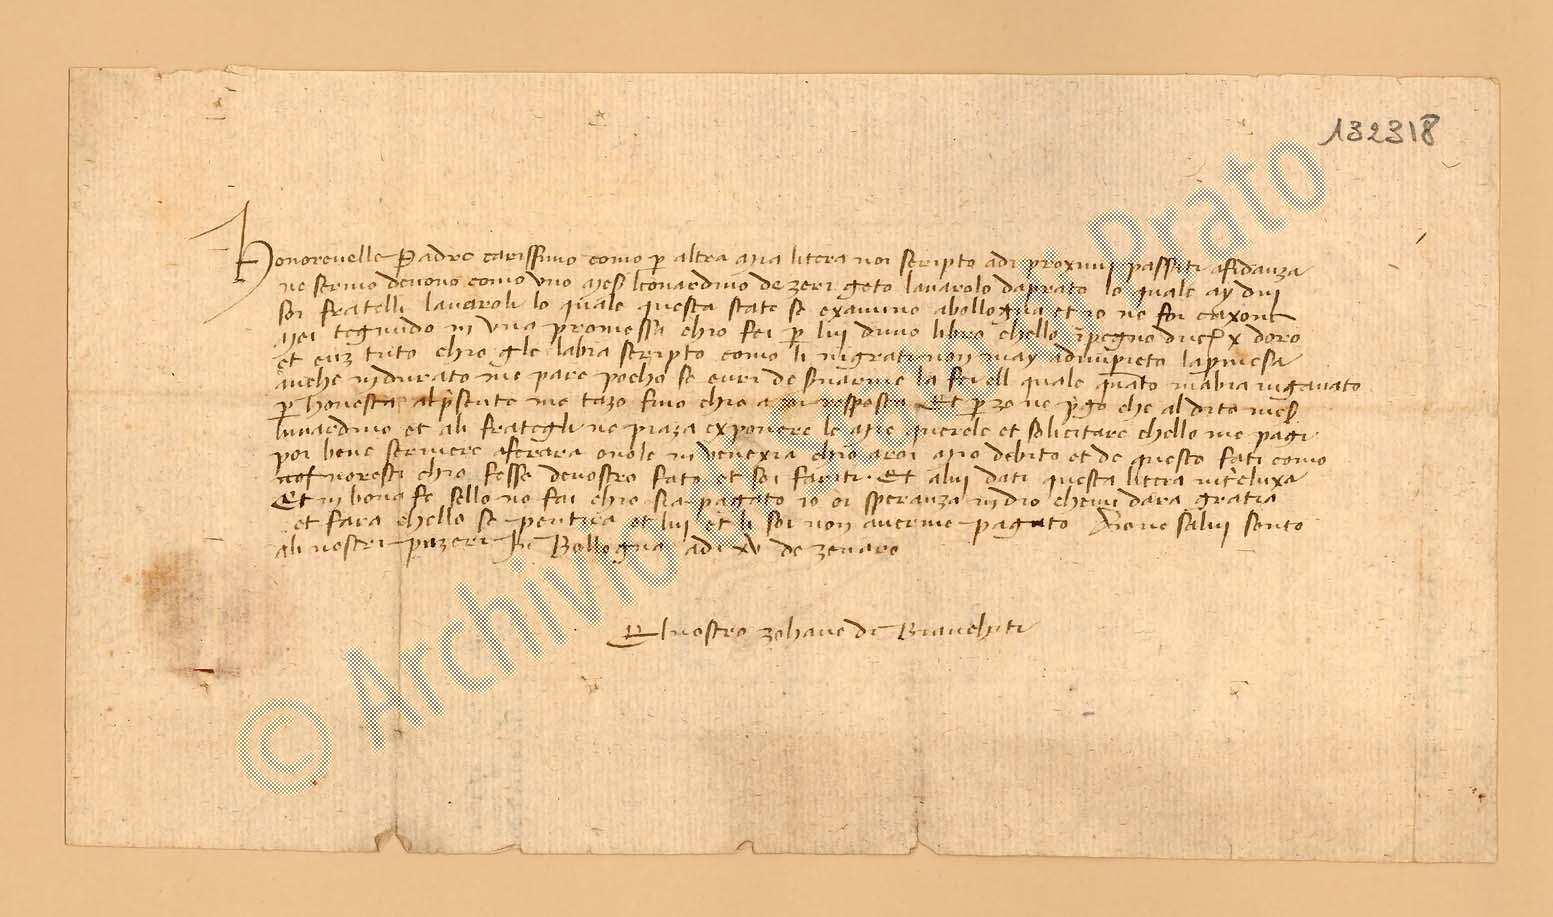 132318
Honorevelle Padre carissimo como per altra mia litera voi scripto adi proximi passati afidanza
ve scrivo de novo como uno mes leonardino de zeri geto lanarolo da prato lo quale ay dui
soi fratelli lanaroli lo quale questa state se examino a bollogna et io ne foi caxone
mei tegnudo in una promessa chio fei per lui duno libro chello ipegno duc x doro
et cuz tuto chio gle labia scripto como li ingrati non may adimpieto la pmesa
anche indurato me pare pocho se curi de la quale quanto mabia inganato
per honesta al psente me tazo fino chio a voi resposta Et per zo ve prego che al dito mes
lunardino et ali frategli ve piaza exponere le mie querele et solicitare chello me pagi
poi bene scrivere a ferara o vole in venexia chio aroi mio debito et de questo fati como
voresti chio fesse de vostro fato et soi fariti. Et alui dati questa litera interluxa
Et in bona fe sello no fai chio sia pagato io oi speranza in dio chemi dara gratia
et fara chello se pentira et lui et li soi non averme pagato A dio ve salvi sonto
ali vostri piazeri In Bollogna adi xv de zenaro
El vostro zohane di Bianchiti
© Archivio di Stato di Prato